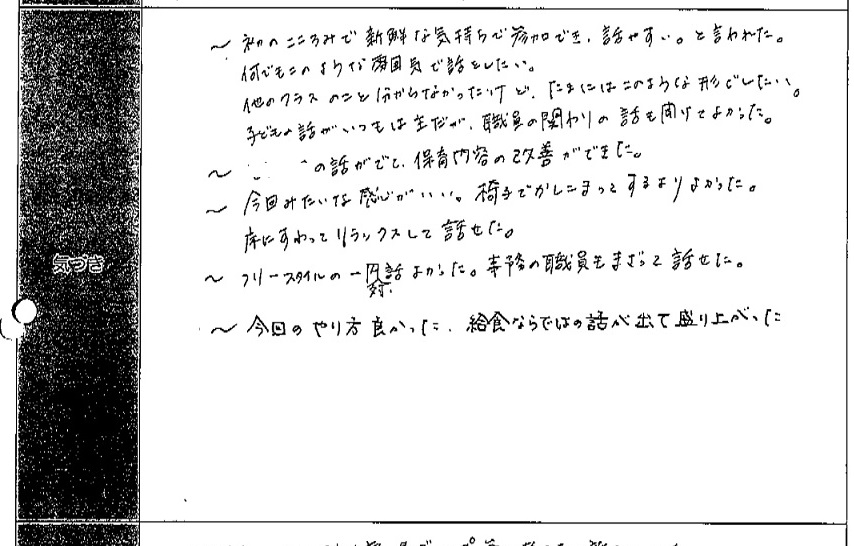 〜 初のこころみで新鮮な気持ちで参加でき、話やすい。と言われた。
何でもこのような雰囲気で話をしたい。
他のクラスのこと分からなかったけど、たまにはこのような形でしたい。
子どもの話がいつもは主だが、職員の関わりの話も聞けてよかった。
〜 の話がでて、保育内容の改善ができた。
〜 今回みたいな感じがいい。椅子でかしこまってするよりよかった。
床にすわってリラックスして話せた。
気づき
〜 フリースタイルの一円話よかった。事務の職員もまざって話せた。
対
〜 今回のやり方良かった、給食ならではの話が出て盛り上がった